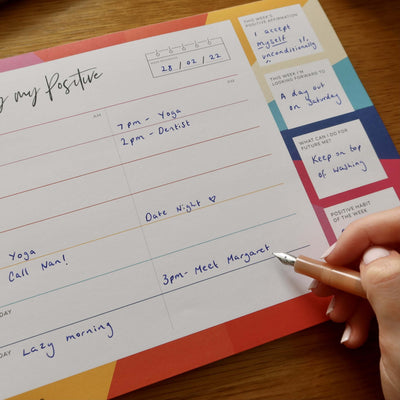 my Positive
28 / 02 / 22
AM
AM
7pm - Yoga
2pm - Dentist
Date Night ♡
Yoga
Call Nan!
3pm - Meet Margaret
DAY
DAY
Lazy morning
THIS WEEK'S
POSITIVE AFFIRMATION
I accept
myself
unconditionally
THIS WEEK I'M
LOOKING FORWARD TO
A day out
on Saturday
WHAT CAN I DO FOR
FUTURE ME?
Keep on top
of washing
POSITIVE HABIT
OF THE WEEK